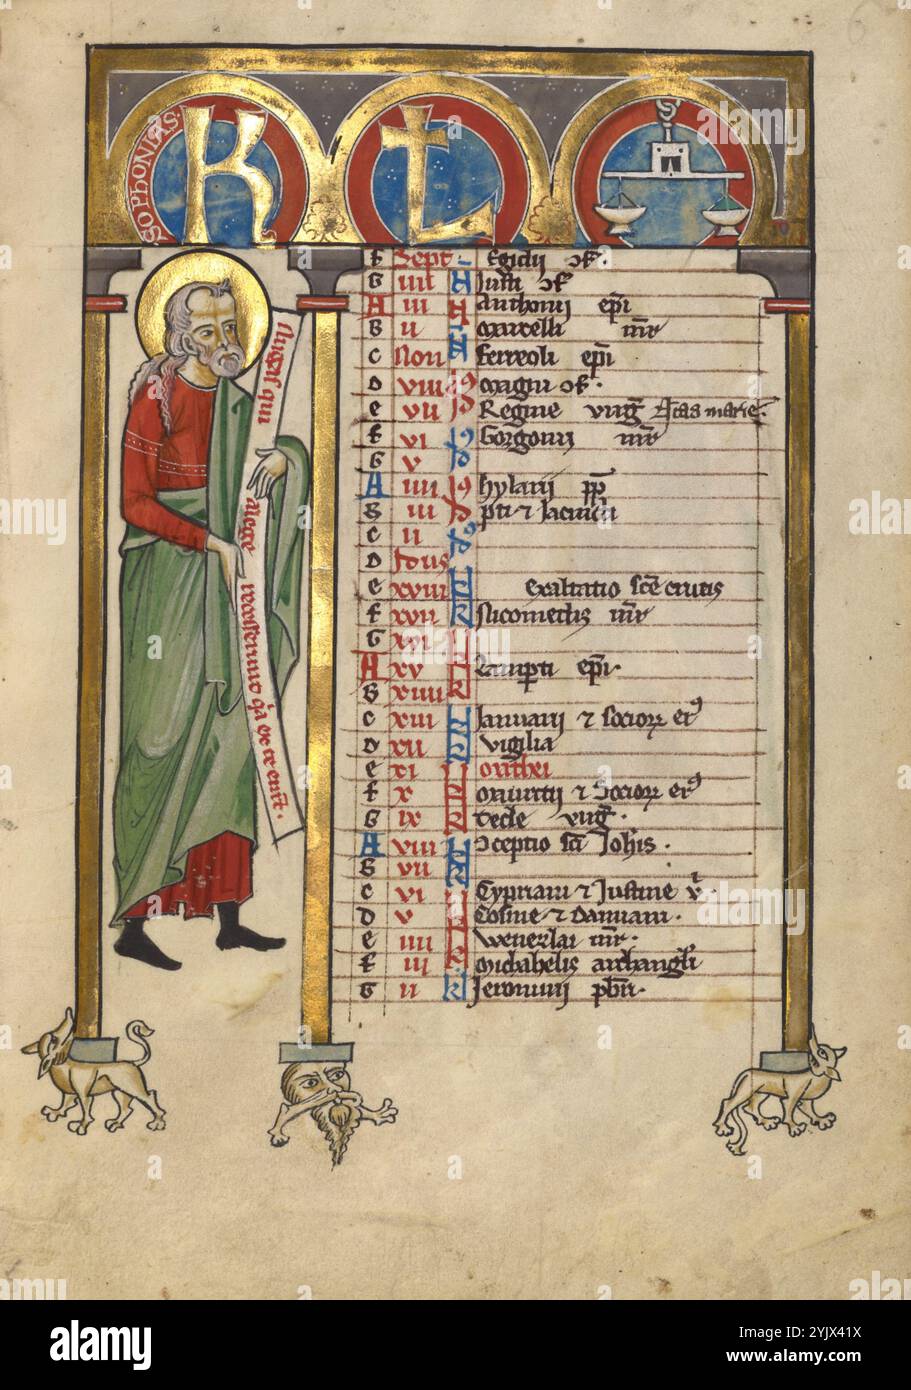 SOPhONIAS.
K L
f Sept. Egidij ɔf.
G iiii Iusti ɔf
A iii Anthonij epi
B ii Marcelli mr
c Non Ferreoli epi
D viii Magni ɔf.
e vii Regine virg marie.
f vi Gorgonij mr
G v
A iiii hylarij pp
B iii pti ⁊ Iacincti
c ii
D Idus
e xviii Exaltatio sce crucis
f xvii Nicometis mr
G xvi
A xv Lampti epi.
B xiiii
c xiii Ianuarij ⁊ socior er9
D xii vigilia
e xi Mathei
f x Mauritij ⁊ Socior er9
G ix Tecle virg.
A viii ɔceptio sci Iohis.
B vii
c vi Cypriani ⁊ Iustine v
d v Cosme ⁊ Damiani.
e iiii Wenezlai mr.
f iii Michahelis archangli
G ii Ieronimi pbri.
qui
a lege
ex te
alamy
Image ID: 2YJX41X
www.alamy.com